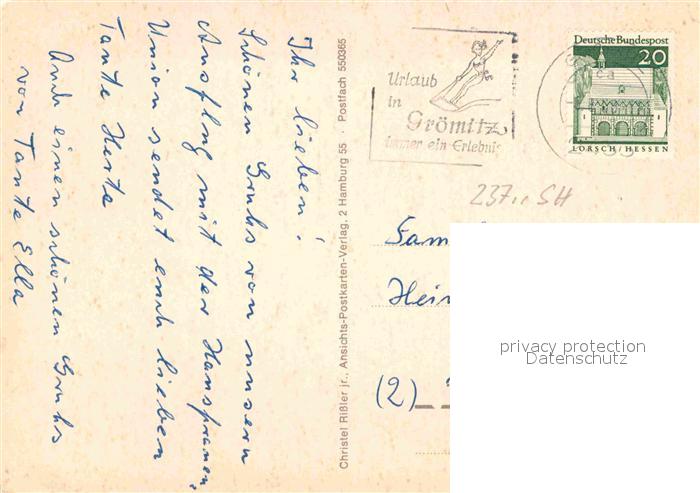 Ihr lieben!
Schönen Gruhs von unsern
Ausflug mit der Hausfrauen-
Union sendet euch lieben
Tante Herta
Auch einen schönen Gruhs
von Tante Ella
Christel Rißler jr., Ansichts-Postkarten-Verlag, 2 Hamburg 55 · Postfach 550365
Urlaub
in
Grömitz
immer ein Erlebnis
Deutsche Bundespost
20
LORSCH/HESSEN
237,, SH
Fam
Hein
(2)
privacy protection
Datenschutz